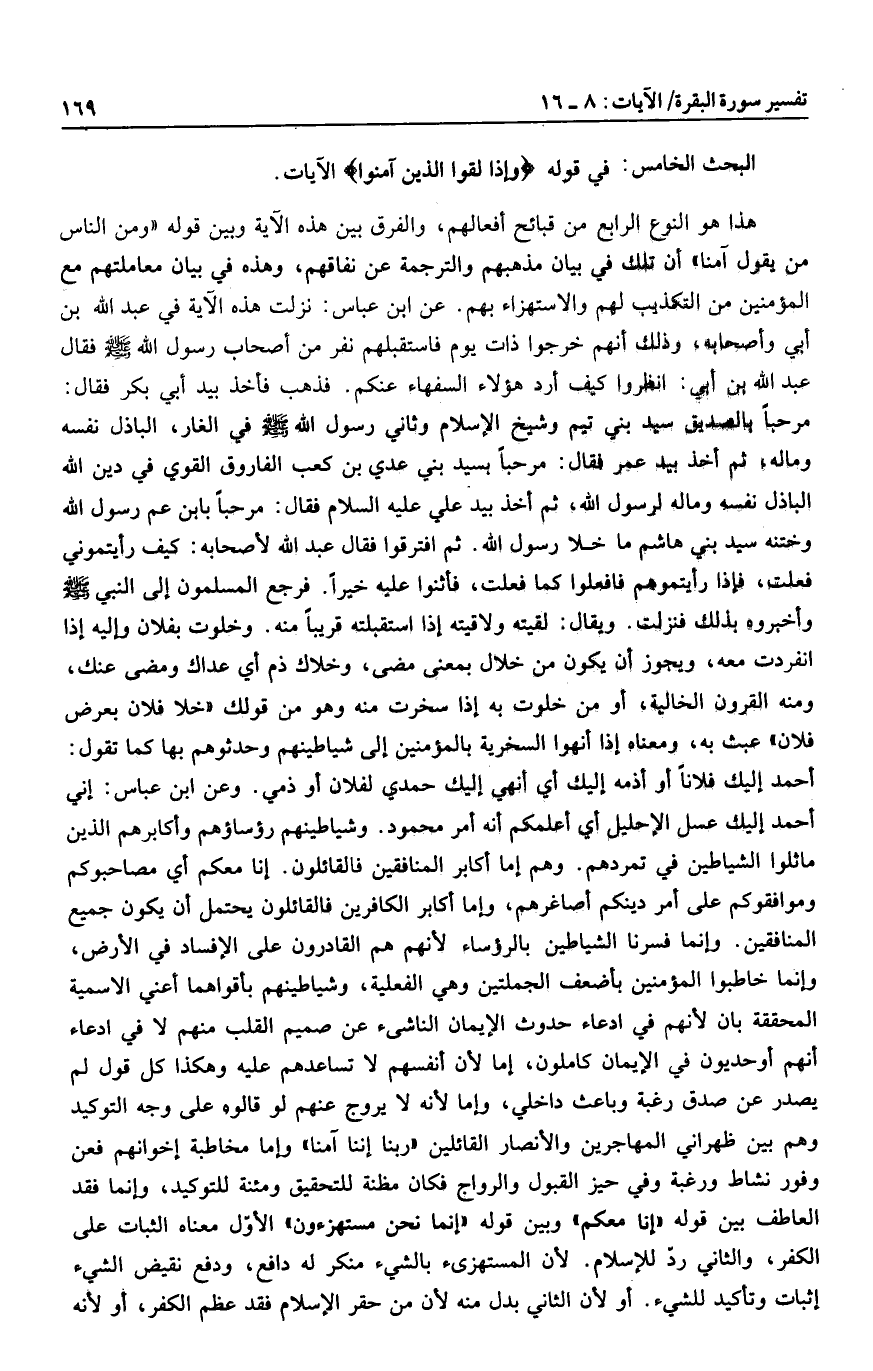 تفسير سورة البقرة/ الآيات: ٨ ـ ١٦ ١٦٩
البحث الخامس: في قوله ﴿وإذا لقوا الذين آمنوا﴾ الآيات.
هذا هو النوع الرابع من قبائح أفعالهم، والفرق بين هذه الآية وبين قوله «ومن الناس
من يقول آمنا» أن تلك في بيان مذهبهم والترجمة عن نفاقهم، وهذه في بيان معاملتهم مع
المؤمنين من التكذيب لهم والاستهزاء بهم. عن ابن عباس: نزلت هذه الآية في عبد الله بن
أبي وأصحابه، وذلك أنهم خرجوا ذات يوم فاستقبلهم نفر من أصحاب رسول الله ﷺ فقال
عبد الله بن أبي: انظروا كيف أرد هؤلاء السفهاء عنكم. فذهب فأخذ بيد أبي بكر فقال:
مرحباً بالصديق سيد بني تيم وشيخ الإسلام وثاني رسول الله ﷺ في الغار، الباذل نفسه
وماله، ثم أخذ بيد عمر فقال: مرحباً بسيد بني عدي بن كعب الفاروق القوي في دين الله
الباذل نفسه وماله لرسول الله، ثم أخذ بيد علي عليه السلام فقال: مرحباً بابن عم رسول الله
وختنه سيد بني هاشم ما خـلا رسول الله. ثم افترقوا فقال عبد الله لأصحابه: كيف رأيتموني
فعلت، فإذا رأيتموهم فافعلوا كما فعلت، فأثنوا عليه خيراً. فرجع المسلمون إلى النبي ﷺ
وأخبروه بذلك فنزلت. ويقال: لقيته ولاقيته إذا استقبلته قريباً منه. وخلوت بفلان وإليه إذا
انفردت معه، ويجوز أن يكون من خلال بمعنى مضى، وخلاك ذم أي عداك ومضى عنك،
ومنه القرون الخالية، أو من خلوت به إذا سخرت منه وهو من قولك «خلا فلان بعرض
فلان» عبث به، ومعناه إذا أنهوا السخرية بالمؤمنين إلى شياطينهم وحدثوهم بها كما تقول:
أحمد إليك فلاناً أو أذمه إليك أي أنهي إليك حمدي لفلان أو ذمي. وعن ابن عباس: إني
أحمد إليك عسل الإحليل أي أعلمكم أنه أمر محمود. وشياطينهم رؤساؤهم وأكابرهم الذين
ماثلوا الشياطين في تمردهم. وهم إما أكابر المنافقين فالقائلون. إنا معكم أي مصاحبوكم
وموافقوكم على أمر دينكم أصاغرهم، وإما أكابر الكافرين فالقائلون يحتمل أن يكون جميع
المنافقين. وإنما فسرنا الشياطين بالرؤساء لأنهم هم القادرون على الإفساد في الأرض،
وإنما خاطبوا المؤمنين بأضعف الجملتين وهي الفعلية، وشياطينهم بأقواهما أعني الاسمية
المحققة بان لأنهم في ادعاء حدوث الإيمان الناشىء عن صميم القلب منهم لا في ادعاء
أنهم أوحديون في الإيمان كاملون، إما لأن أنفسهم لا تساعدهم عليه وهكذا كل قول لم
يصدر عن صدق رغبة وباعث داخلي، وإما لأنه لا يروج عنهم لو قالوه على وجه التوكيد
وهم بين ظهراني المهاجرين والأنصار القائلين «ربنا إننا آمنا» وإما مخاطبة إخوانهم فعن
وفور نشاط ورغبة وفي حيز القبول والرواج فكان مظنة للتحقيق ومئنة للتوكيد، وإنما فقد
العاطف بين قوله «إنا معكم» وبين قوله «إنما نحن مستهزءون» الأوّل معناه الثبات على
الكفر، والثاني ردّ للإسلام. لأن المستهزىء بالشيء منكر له دافع، ودفع نقيض الشيء
إثبات وتأكيد للشيء. أو لأن الثاني بدل منه لأن من حقر الإسلام فقد عظم الكفر، أو لأنه